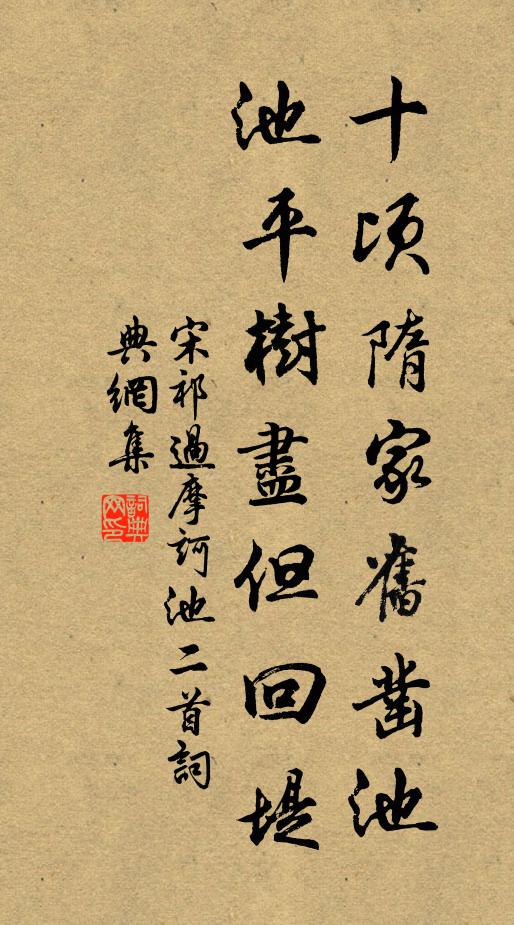 十頃隋家舊凿池
池平樹盡但回堤
宋祁過摩訶池二首詞
典網集
詞典
网印